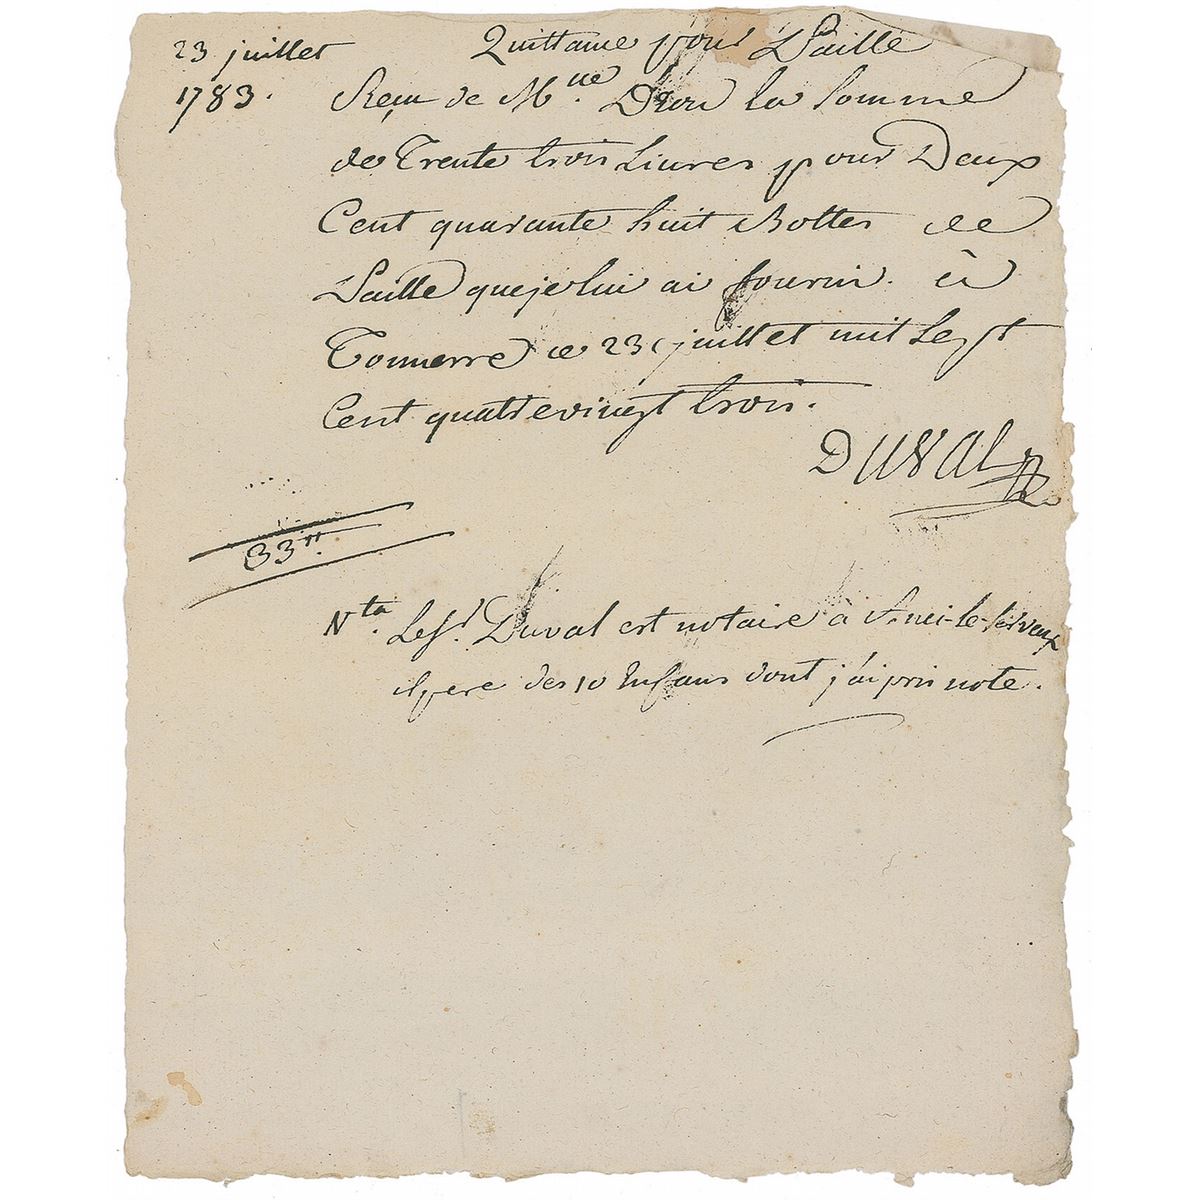 23 juillet
1783.
Quittance pour Paille
Reçu de M.lle Deon la Somme
de Trente trois Livres pour Deux
Cent quarante huit Bottes de
Paille que je lui ai fourni. à
Tonnerre ce 23 juillet mil Sept
Cent quatre vingt trois.
DUVAL
33lt.
Nta. Le Sr. Duval est notaire à
il pere des 10 Enfans dont j'ai pris note.